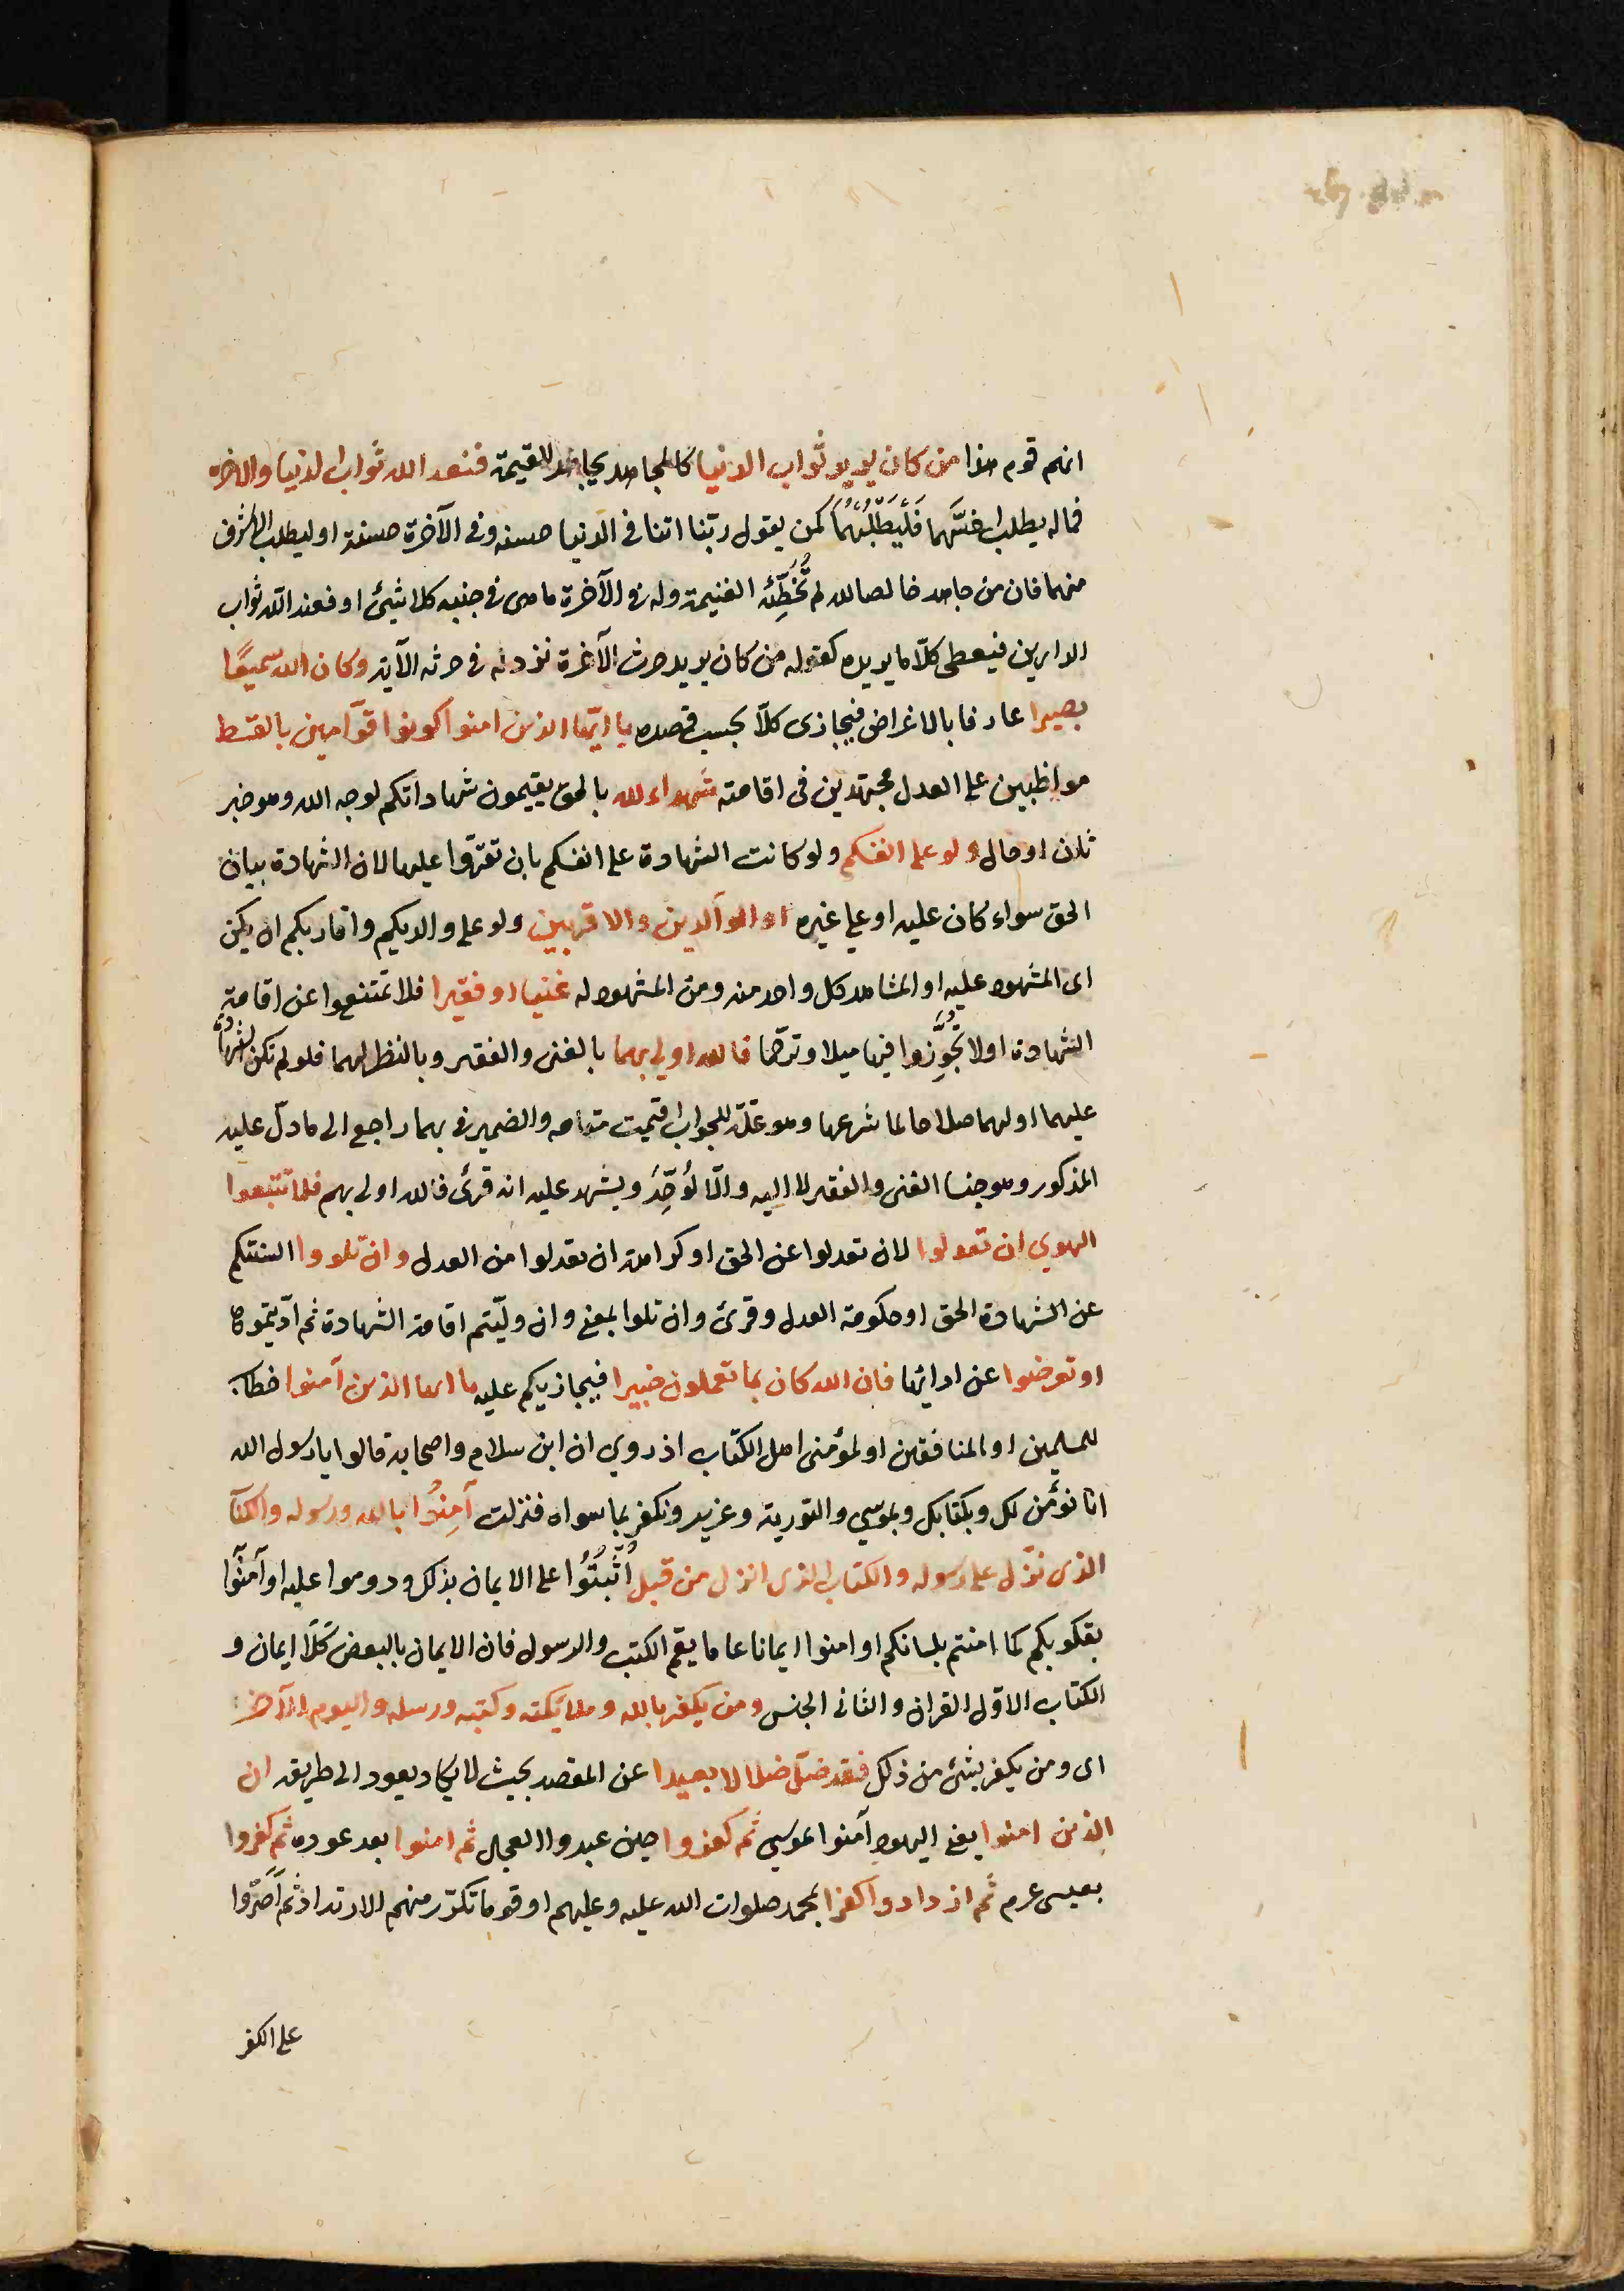 انهم قوم هذا من كان يريد ثواب الدنيا كالمجاهد يجاهد للغنيمة فعند الله ثواب الدنيا والاخرة
فماله يطلب اخسّهما فَلْيَطْلُبْهُمَا كمن يقول ربّنا اتنا فى الدنيا حسنه وفى الآخرة حسنة او ليطلب الاشرف
منهما فان من جاهد خالصا لله لم تُخْطِئْه الغنيمة وله فى الآخرة ما هى فى جنبه كلا شيئ او فعند الله ثواب
الدارين فيعطى كلّا ما يريده كقوله من كان يريد حرث الآخرة نزد له فى حرثه الآية وكان الله سميعًا
بصيرا عارفا بالاغراض فيجازى كلّا بحسب قصده يا ايّها الذين امنوا كونوا قوّامين بالقسط
مواظبين على العدل مجتهدين فى اقامته شهداء لله بالحق يقيمون شهاداتكم لوجه الله وهو خبر
ثان او حال ولو على انفسكم ولو كانت الشهادة على انفسكم بان تقرّوا عليها لان الشهادة بيان
الحق سواء كان عليه او على غيره او الوالدين والاقربين ولو على والديكم واقاربكم ان يكن
اى المشهود عليه او المشاهد كل واحد منه ومن المشهود له غنيا او فقيرا فلا تمتنعوا عن اقامة
الشهادة او لا تُجَوِّزوا فيها ميلا وترحّما فالله اولى بهما بالغنى والفقير وبالنظر لهما فلو لم تكن الشهادة
عليهما او لهما صلاحا لما شرعها وهو علّة للجواب اقيمت مقامه والضمير فى بهما راجع الى ما دلّ عليه
المذكور وهو جنسا الغنى والفقير لا اليه والّا لوُحِّدَ ويشهد عليه انه قرئ فالله اولى بهم فلا تتبعوا
الهوى ان تعدلوا لان تعدلوا عن الحق او كراهة ان تعدلوا من العدل وان تلووا السنتكم
عن الشهادة الحق او حكومة العدل وقرئ وان تلوا بمعنى وان ولّيتم اقامة الشهادة ثم ادّيتموها
او تعرضوا عن ادائها فان الله كان بما تعملون خبيرا فيجازيكم عليه يا ايها الذين آمنوا خطاب
للمسلمين او المنافقين او لمؤمنى اهل الكتاب اذ روي ان ابن سلام واصحابه قالوا يا رسول الله
انا نؤمن لك وبكتابك وبموسي والتورية وعزير ونكفر بما سواه فنزلت آمِنُوا بالله ورسوله والكتاب
الذى نزّل على رسوله والكتاب الذى انزل من قبل اُثْبُتُوا على الايمان بذلك ودوموا عليه او آمنُوا
بقلوبكم كما امنتم بلسانكم او امنوا ايمانا عاما يعم الكتب والرسول فان الايمان بالبعض كلا ايمان و
الكتاب الاوّل القران والثانى الجنس ومن يكفر بالله وملائكته وكتبه ورسله واليوم الآخر
اى ومن يكفر بشئ من ذلك فقد ضلّ ضلالا بعيدا عن المقصد بحيث لا يكاد يعود الى طريقه ان
الذين امنوا يعنى اليهود آمنوا بموسي ثم كفروا حين عبدوا العجل ثم امنوا بعد عوده ثم كفروا
بعيسى عم ثم ازدادوا كفرا بمحمد صلوات الله عليه وعليهم او قوما تكرّر منهم الارتداد ثم اَصَرّوا
على الكفر